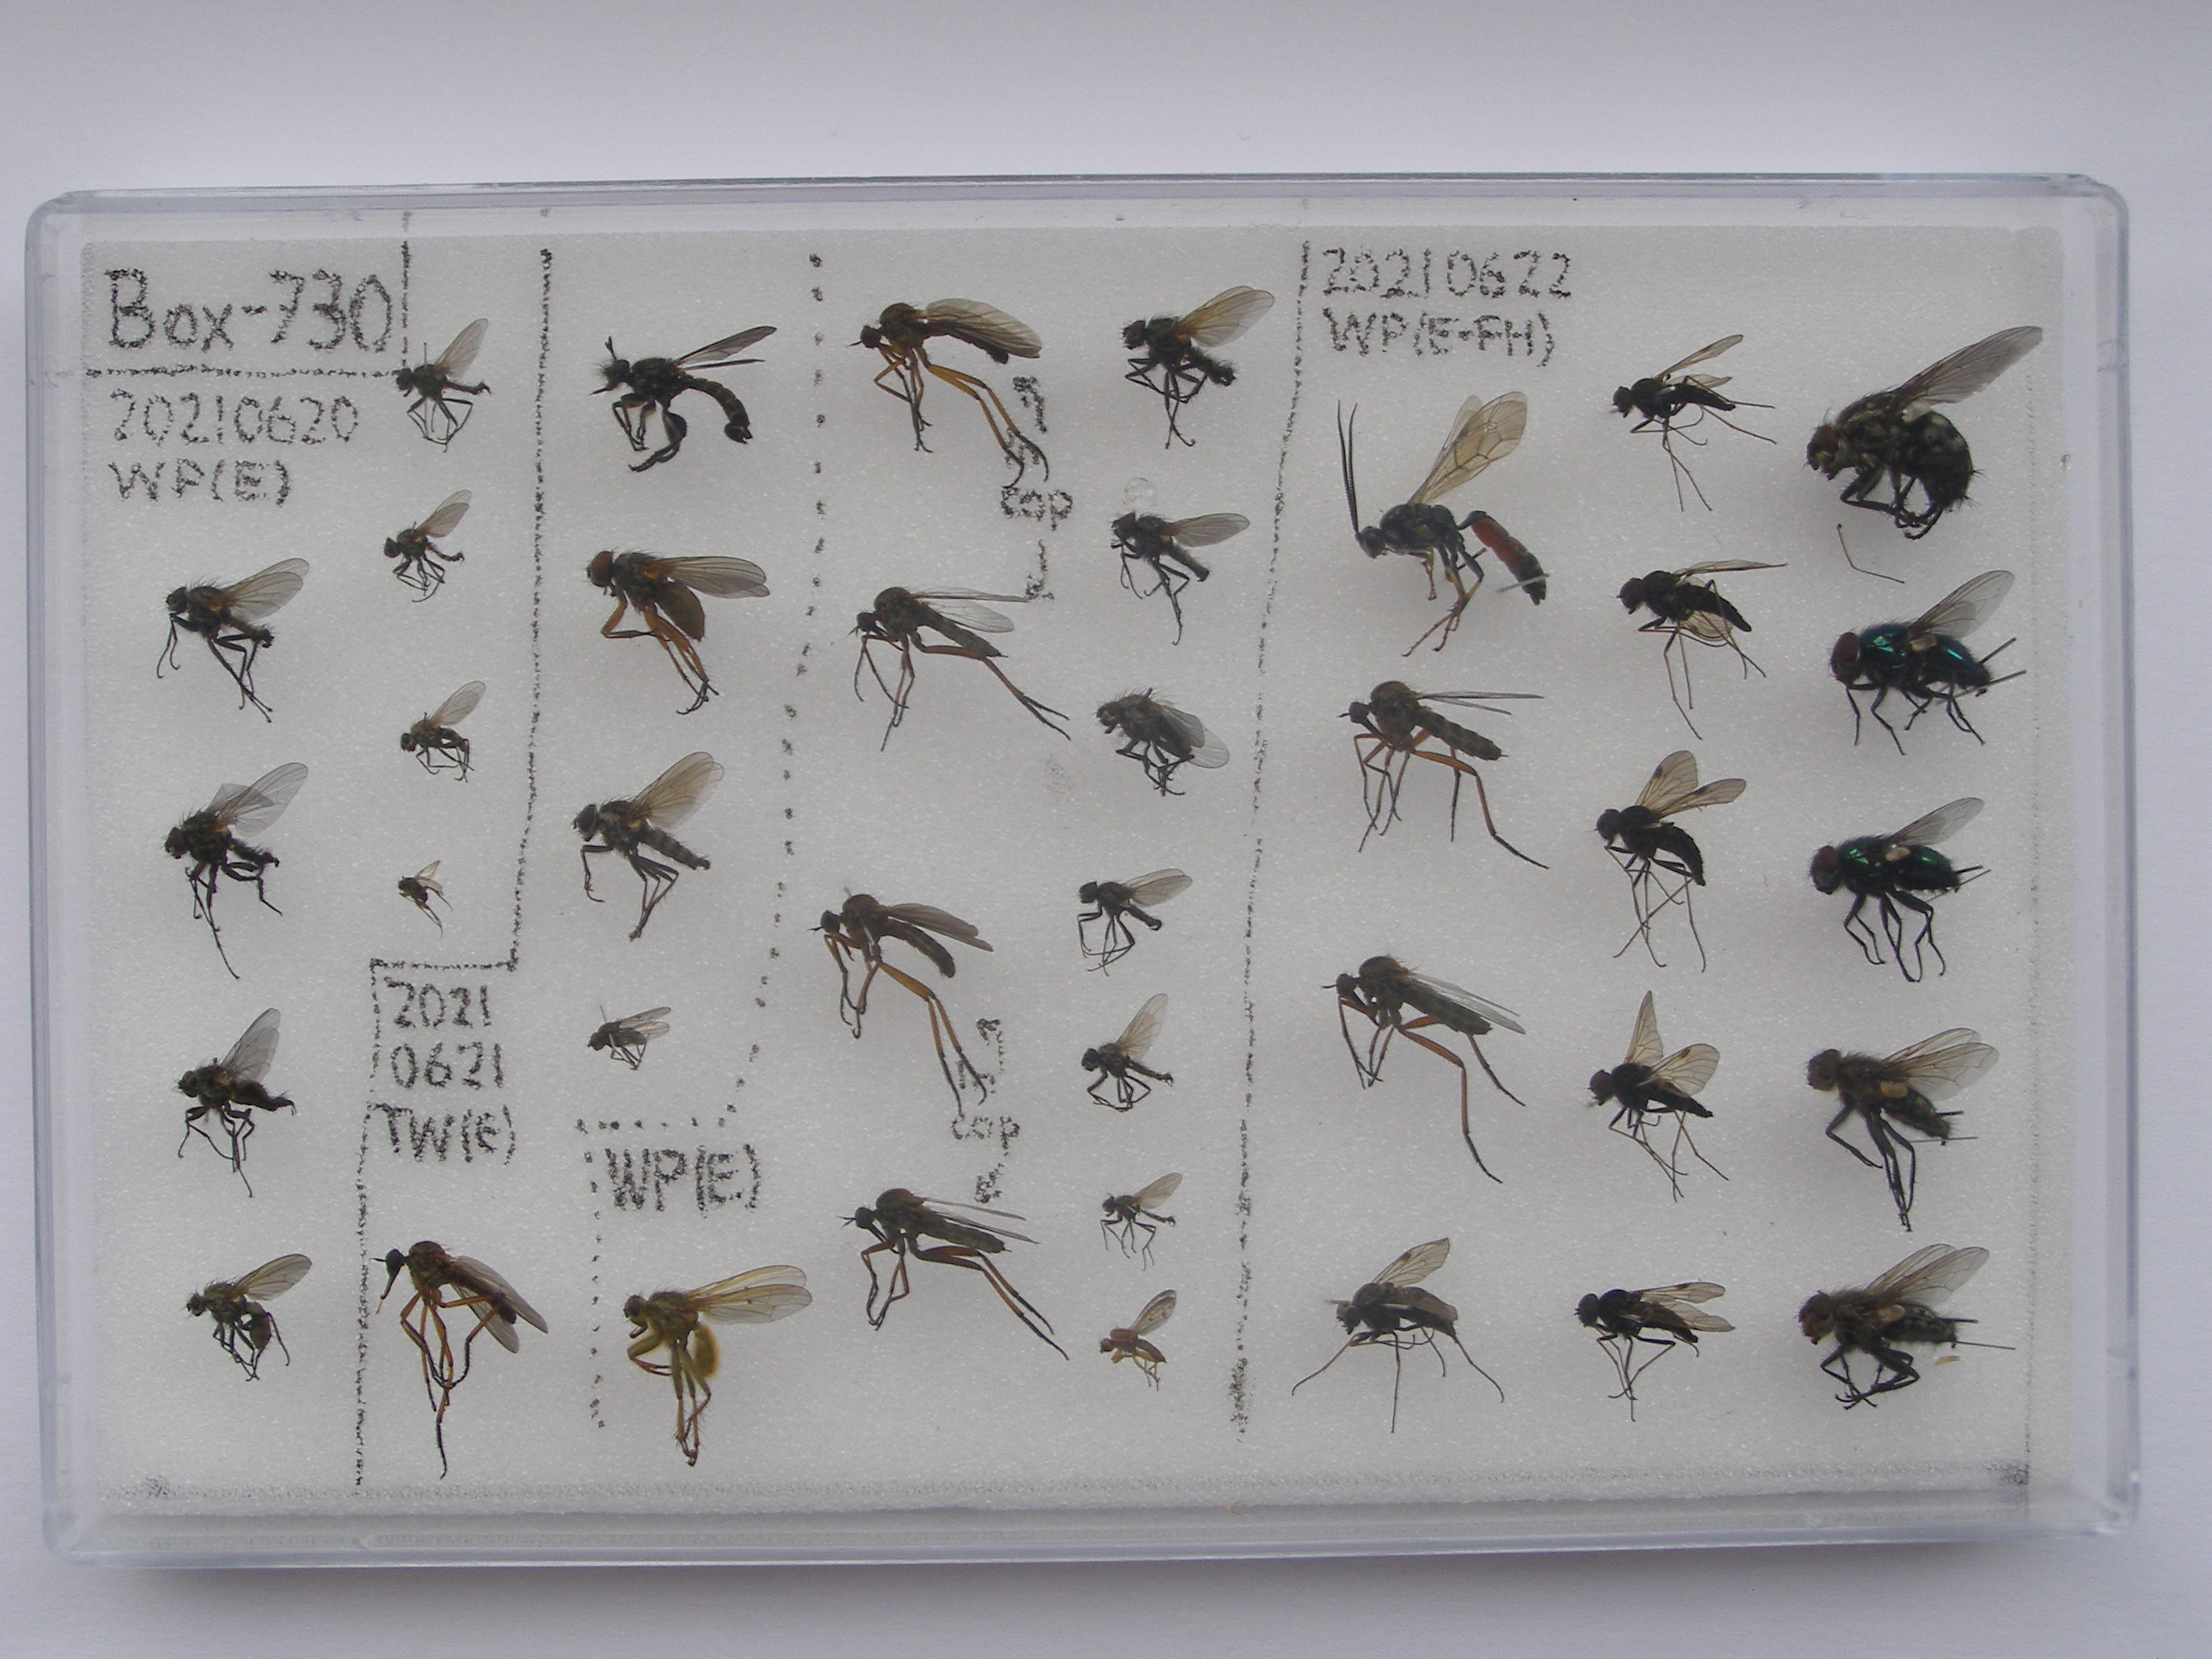 Box-730
20210620
WP(E)
2021
0621
TW(E)
WP(E)
cop
cop
20210622
WP(E-FH)